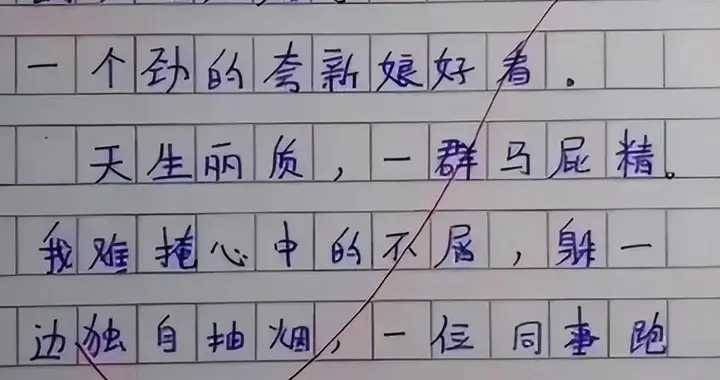 一个劲的夸新娘好看。
天生丽质，一群马屁精。
我难掩心中的不屑，躲一
边独自抽烟，一位同事跑